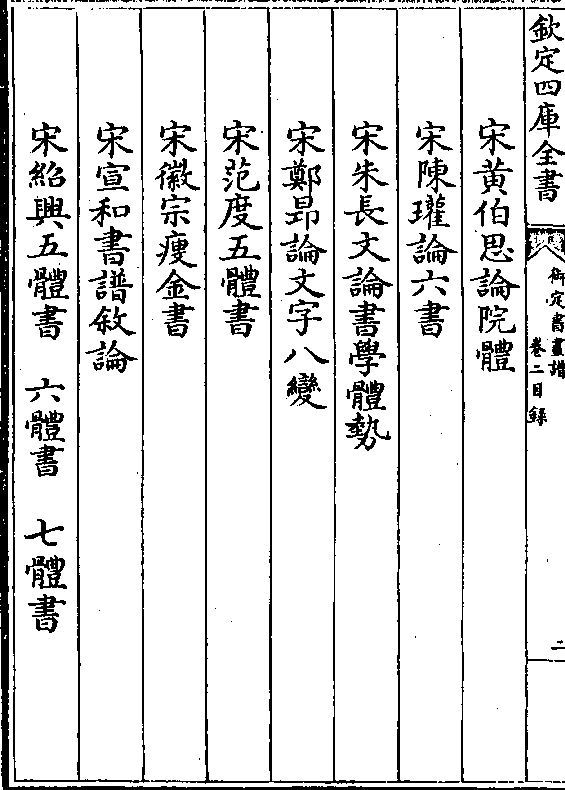 欽定四庫全書
御定書畫譜
卷二目錄
二
宋黃伯思論院體
宋陳瓘論六書
宋朱長文論書學體勢
宋鄭昂論文字八變
宋范度五體書
宋徽宗瘦金書
宋宣和書譜敘論
宋紹興五體書　六體書　七體書